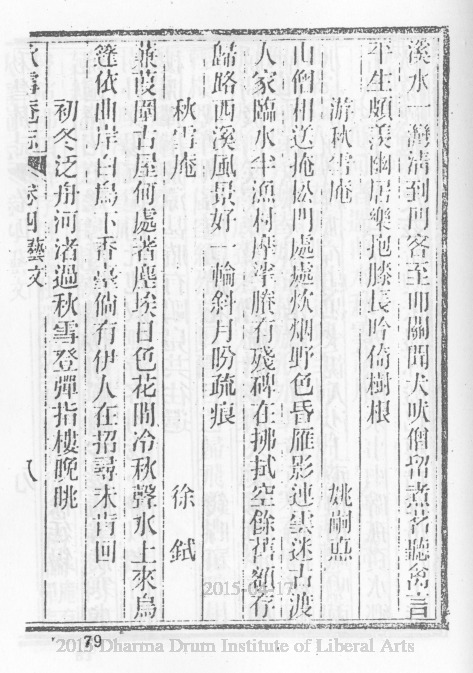 溪水一灣清到門客至叩關聞犬吠僧招煮茗聽禽言
平生頗羡幽居樂抱膝長吟倚樹根
游秋雪庵 姚嗣燾
山僧相送掩松門處處炊烟野色昏雁影連雲迷古渡
人家臨水半漁村摩挲賸有殘碑在拂拭空餘舊額存
歸路西溪風景好一輪斜月盼疏痕
秋雪庵 徐鉽
蒹葭圍古屋何處著塵埃日色花間冷秋聲水上來烏
篷依曲岸白鳥下香臺倘有伊人在招尋未肯回
初冬泛舟河渚過秋雪登彈指樓晚眺
秋雪庵志 卷四 藝文 八
2015-04-17
79
2015 Dharma Drum Institute of Liberal Arts